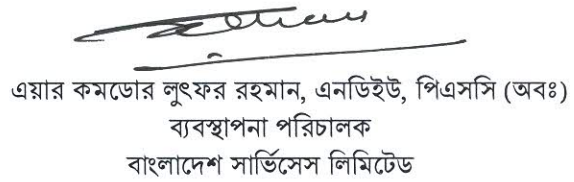 এয়ার কমডোর লুৎফর রহমান, এনডিইউ, পিএসসি (অবঃ)
ব্যবস্থাপনা পরিচালক
বাংলাদেশ সার্ভিসেস লিমিটেড